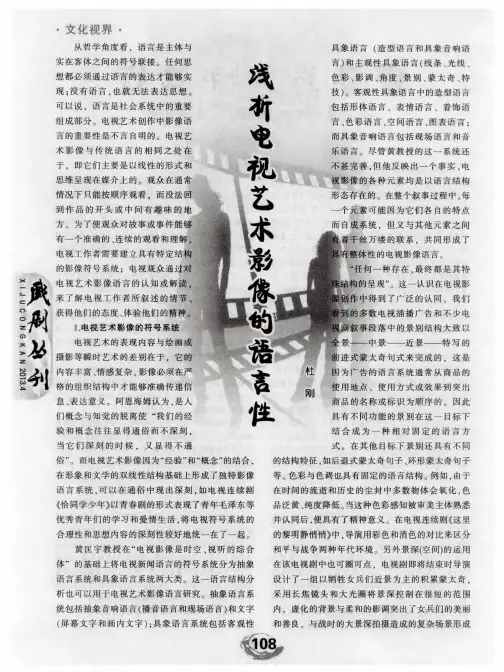 ·文化视界·
从哲学角度看，语言是主体与
实在客体之间的符号联接。任何思
想都必须通过语言的表达才能够实
现；没有语言，也就无法表达思想。
可以说，语言是社会系统中的重要
组成部分。电视艺术创作中影像语
言的重要性是不言自明的。电视艺
术影像与传统语言的相同之处在
于，即它们主要是以线性的形式和
思维呈现在媒介上的。观众在通常
情况下只能按顺序观看，而没法回
到作品的开头或中间有趣味的地
方。为了使观众对故事或事件能够
有一个准确的、连续的观看和理解，
电视工作者需要建立具有特定结构
的影像符号系统；电视观众通过对
电视艺术影像语言的认知或解读，
来了解电视工作者所叙述的情节、
获得他们的态度、体验他们的精神。
1.电视艺术影像的符号系统
电视艺术的表现内容与绘画或
摄影等瞬时艺术的差别在于，它的
内容丰富、情感复杂。影像必须在严
格的组织结构中才能够准确传递信
息、表达意义。阿恩海姆认为，是人
们概念与知觉的脱离使“我们的经
验和概念往往显得通俗而不深刻，
当它们深刻的时候，又显得不通
俗”。而电视艺术影像因为“经验”和“概念”的结合，
在形象和文学的双线性结构基础上形成了独特影像
语言系统，可以在通俗中现出深刻，如电视连续剧
《恰同学少年》以青春剧的形式表现了青年毛泽东等
优秀青年们的学习和爱情生活，将电视符号系统的
合理性和思想内容的深刻性较好地统一在了一起。
黄匡宇教授在“电视影像是时空、视听的综合
体”的基础上将电视新闻语言的符号系统分为抽象
语言系统和具象语言系统两大类。这一语言结构分
析也可以用于电视艺术影像语言研究。抽象语言系
统包括抽象音响语言（播音语言和现场语言）和文字
（屏幕文字和画内文字）；具象语言系统包括客观性
浅析电视艺术影像的语言性
杜刚
具象语言（造型语言和具象音响语
言）和主观性具象语言（线条、光线、
色彩、影调、角度、景别、蒙太奇、特
技）。客观性具象语言中的造型语言
包括形体语言、表情语言、着饰语
言、色彩语言、空间语言、图表语言；
而具象音响语言包括现场语言和音
乐语言。尽管黄教授的这一系统还
不甚完善，但他反映出一个事实，电
视影像的各种元素均是以语言结构
形态存在的。在整个叙事过程中，每
一个元素可能因为它们各自的特点
而自成系统，但又与其他元素之间
有着千丝万缕的联系，共同形成了
具有整体性的电视影像语言。
“任何一种存在，最终都是其特
殊结构的呈现”。这一认识在电视影
像创作中得到了广泛的认同。我们
看到的多数电视插播广告和不少电
视剧叙事段落中的景别结构大致以
全景——中景——近景——特写的
前进式蒙太奇句式来完成的。这是
因为广告的语言系统通常从商品的
使用地点、使用方式或效果到突出
商品的名称或标识为顺序的。因此
具有不同功能的景别在这一目标下
结合成为一种相对固定的语言方
式。在其他目标下景别还具有不同
的结构特征，如后退式蒙太奇句子、环形蒙太奇句子
等。色彩与色调也具有固定的语言结构。例如，由于
在时间的流逝和历史的尘封中多数物体会氧化，色
品泛黄、纯度降低，当这种色彩感知被审美主体熟悉
并认同后，便具有了精神意义。在电视连续剧《这里
的黎明静悄悄》中，导演用彩色和消色的对比来区分
和平与战争两种年代环境。另外景深（空间）的运用
在该电视剧中也可圈可点，电视剧即将结束时导演
设计了一组以牺牲女兵们近景为主的积累蒙太奇，
采用长焦镜头和大光圈将景深控制在很短的范围
内。虚化的背景与柔和的影调突出了女兵们的美丽
和善良，与战时的大景深拍摄造成的复杂场景形成
戏剧丛刊
XIJUCONGKAN 2013.4
108